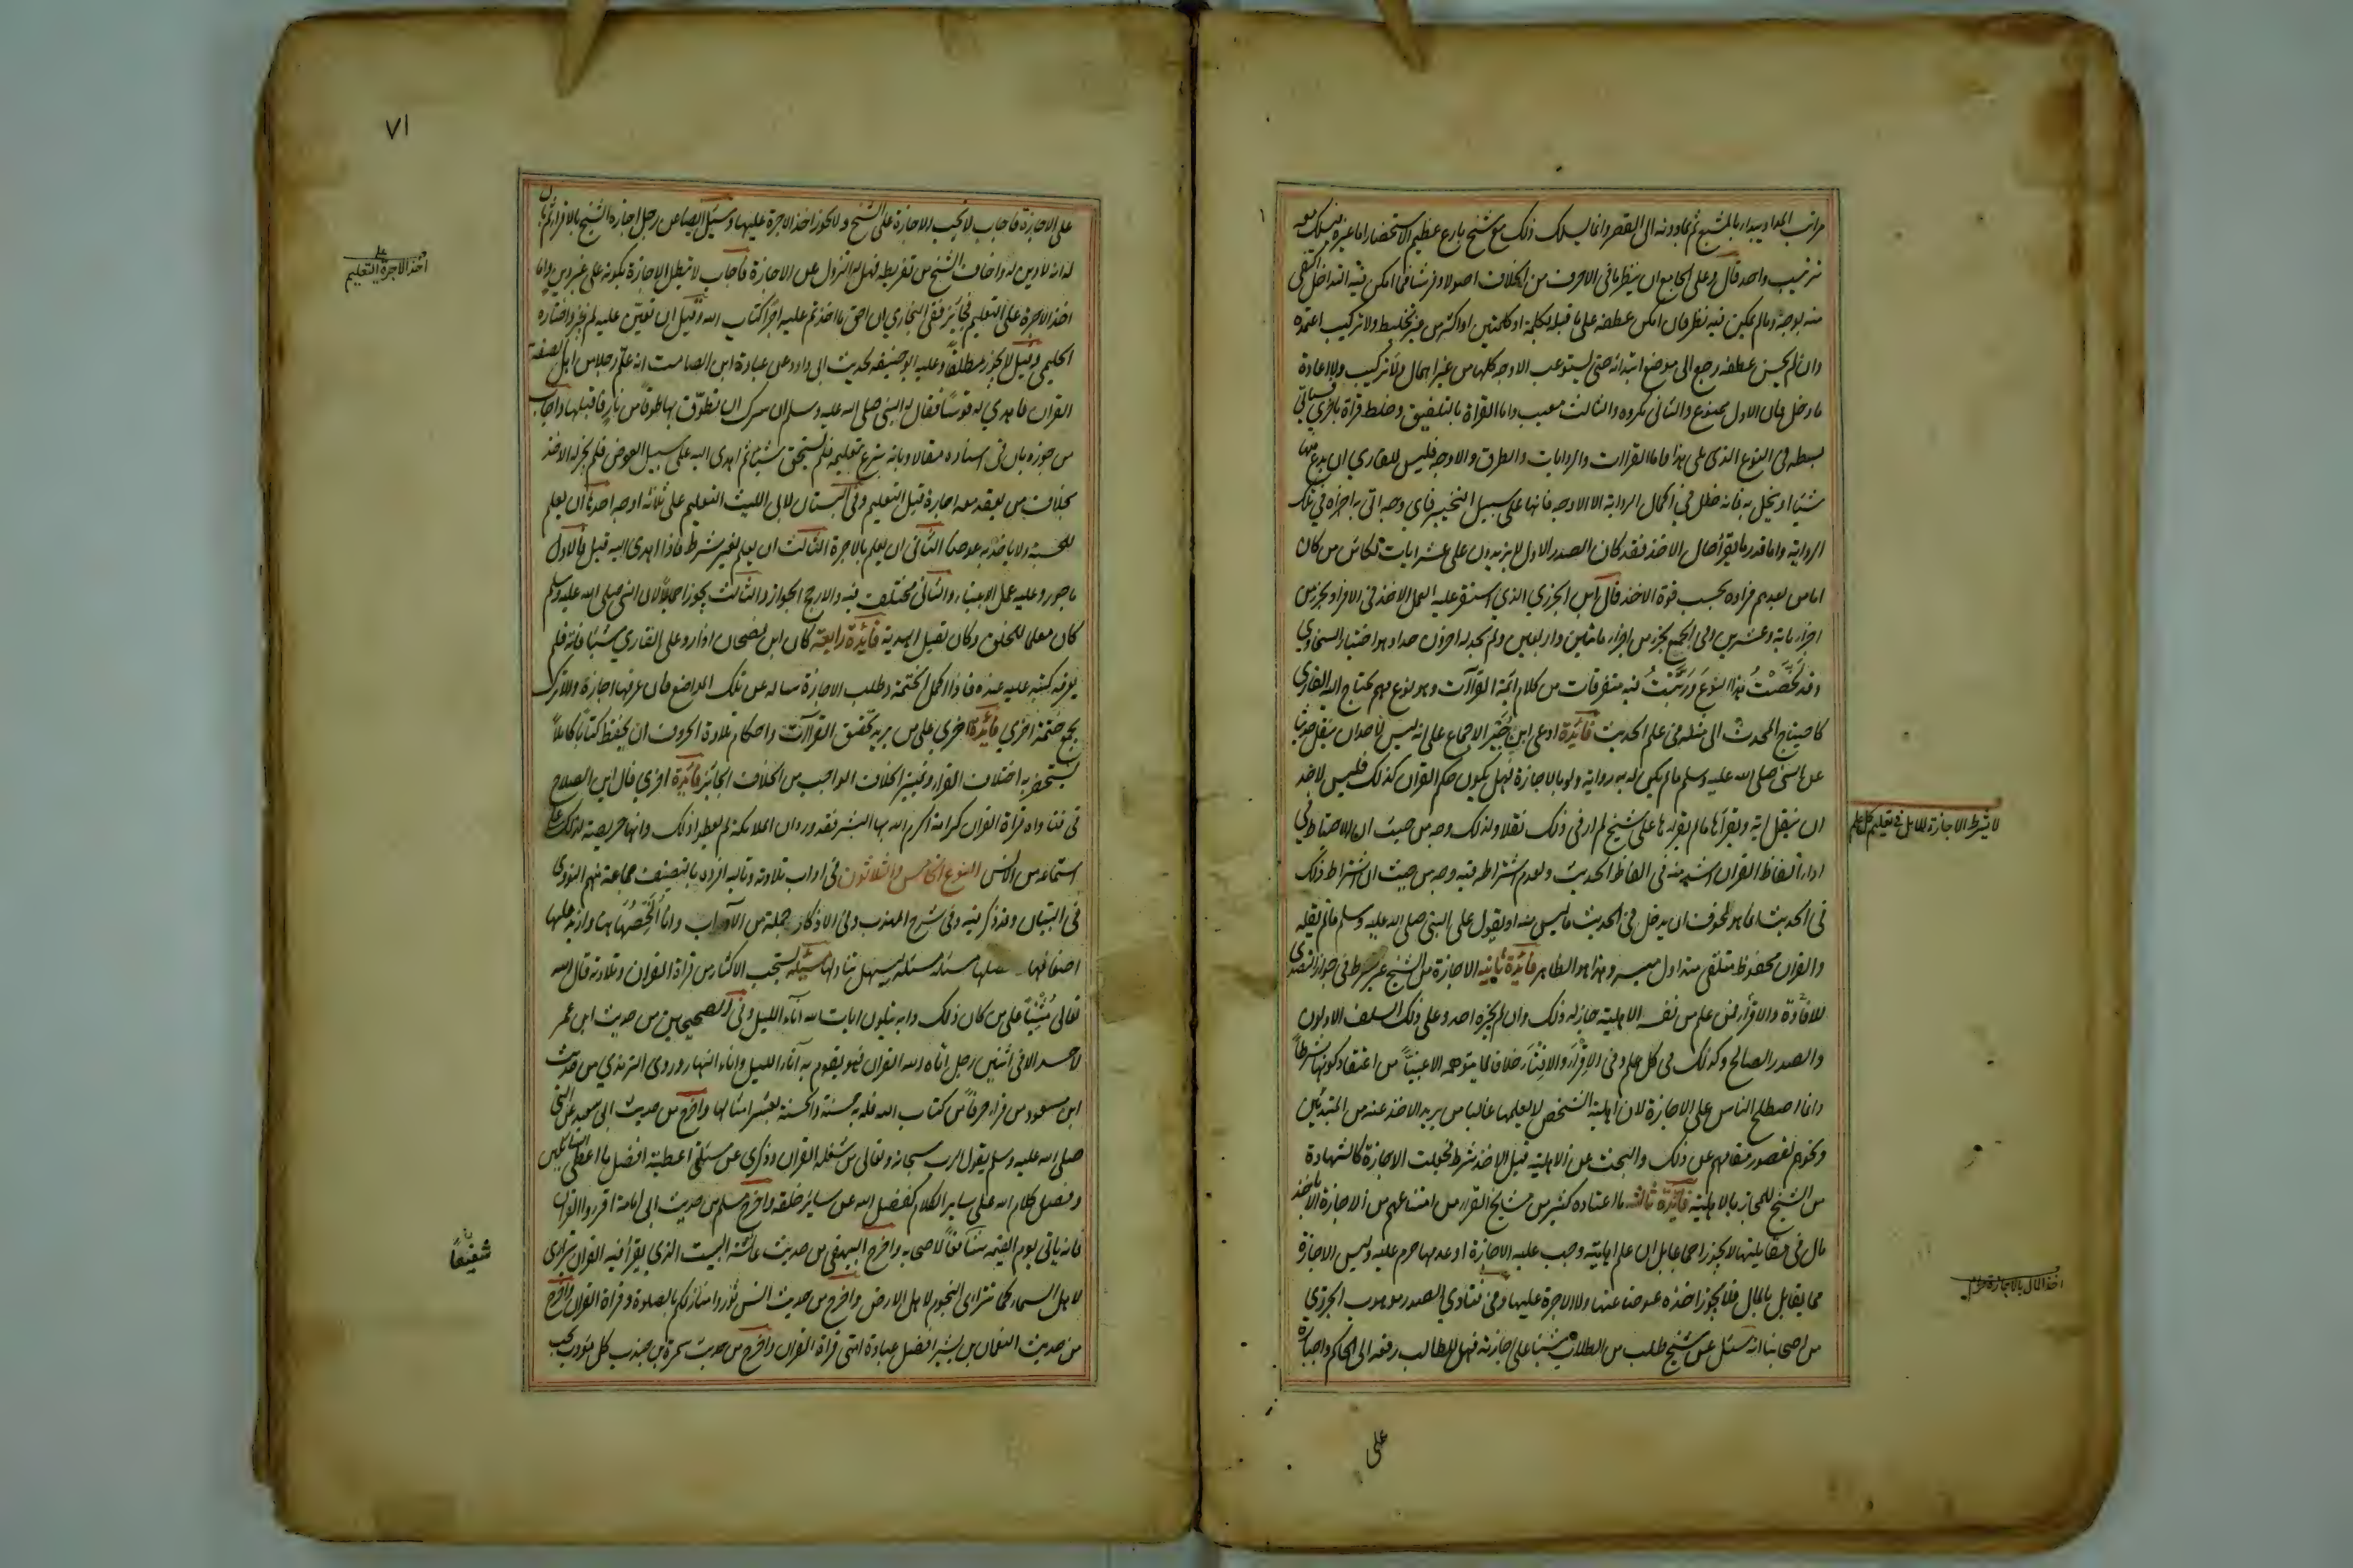 مراتب المد او يبدا بالمشبع ثم بما دونه الى القصر وانما يسلك ذلك مع شيخ بارع عظيم الاستحضار اما غيره فيسلك معه
ترتيب واحد قال وعلى الجامع ان ينظر ما فى الاحرف من الخلاف اصولا وفرشا فما امكن فيه التداخل اكتفى
منه بوجه وما لم يمكن فيه نظر فان امكن عطفه على ما قبله بكلمة او كلمتين او اكثر من غير تخليط ولا تركيب اعتمده
وان لم يحسن عطفه رجع الى موضع ابتدائه حتى يستوعب الاوجه كلها من غير اهمال ولا تركيب ولا اعادة
ما دخل فان الاول ممنوع والثانى مكروه والثالث معيب واما القراة بالتلفيق وخلط قراة باخرى فسياتى
بسطه فى النوع الذى يلى هذا واما القراات والروايات والطرق والاوجه فليس للقارى ان يدع منها
شيئا او يخل به فانه خلل فى اكمال الرواية الا الاوجه فانها على سبيل التخيير فاى وجه اتى به اجزاه فى تلك
الرواية واما قدر ما يقرأ حال الاخذ فقد كان الصدر الاول لا يزيدون على عشر ايات لكائن من كان
اما من بعدهم فراوه بحسب قوة الاخذ قال ابن الجزرى الذى استقر عليه العمل الاخذ فى الافراد بجزء من
اجزاء ماية وعشرين وفى الجمع بجزء من اجزاء مائتين واربعين ولم يحد له اخرون حدا وهو اختيار السخاوى
وقد لخَّصْتُ هذا النوع ورتَّبْتُ فيه متفرقات من كلام ايمة القراآت وهو نوع مهم يحتاج اليه القارى
كاحتياج المحدث الى مثله من علم الحديث فائدة ادعى ابن خَيْر الاجماع على انه ليس لاحد ان ينقل حديثا
عن النبى صلى الله عليه وسلم ما لم يكن له به رواية ولو بالاجازة فهل يكون حكم القران كذلك فليس لاحد
ان ينقل اية ويقرأها ما لم يقراها على شيخ لم ار فى ذلك نقلا ولذلك وجه من حيث ان الاحتياط فى
اداء الفاظ القران اشد منه فى الفاظ الحديث ولعدم اشتراطه فيه وجه من حيث ان اشتراط ذلك
فى الحديث انما هو لخوف ان يدخل فى الحديث ما ليس منه او يتقول على النبى صلى الله عليه وسلم ما لم يقله
والقران محفوظ متلقى متداول ميسر وهذا هو الظاهر فائدة ثانيه الاجازة من الشيخ غير شرط فى جواز التصدى
للافادة والاقراء فمن علم من نفسه الاهلية جاز له ذلك وان لم يجزه احد وعلى ذلك السلف الاولون
والصدر الصالح وكذلك فى كل علم وفى الاقراء والافتاء خلافا لما يتوهمه الاغبياء من اعتقاد كونها شرطاً
وانما اصطلح الناس على الاجازة لان اهلية الشخص لا يعلمها غالبا من يريد الاخذ عنه من المبتدئين
ونحوهم لقصور مقامهم عن ذلك والبحث عن الاهلية قبل الاخذ شرط فجعلت الاجازة كالشهادة
من الشيخ للمجاز بالاهلية فائدة ثالثة ما اعتاده كثير من مشايخ القراء من امتناعهم من الاجازة الا باخذ
مال فى مقابلتها لا يجوز اجماعا بل ان علم اهليته وجب عليه الاجازة او عدمها حرم عليه وليس الاجازة
مما يقابل بالمال فلا يجوز اخذه عوضا عنها ولا الاجرة عليها وفى فتاوى الصدر موهوب الجزرى
من اصحابنا انه سئل عن شيخ طلب من الطالب شيئا على اجازته فهل للطالب رفعه الى الحاكم واجباره
على
لا يشترط الاجازة للاهل فى تعليم كل علم
اخذ المال بالاجازة حرام
٧١
على الاجازة فاجاب لا تجب الاجازة على الشيخ ولا يجوز اخذ الاجرة عليها وسئل ايضا عن رجل اجازه الشيخ بالاقراء ثم بان
له انه لا دين له وخاف الشيخ من تفريطه فهل له النزول عن الاجازة فاجاب لا تبطل الاجازة بكونه على غير دين واما
اخذ الاجرة على التعليم فجائز ففى البخارى ان احق ما اخذتم عليه اجرًا كتاب الله وقيل ان تعين عليه لم يجز واختاره
الحليمى وقيل لا يجوز مطلقا وعليه ابو حنيفه لحديث ابى داود عن عبادة ابن الصامت انه علّم رجلا من اهل الصفة
القران فاهدى له قوسًا فقال له النبى صلى الله عليه وسلم ان سرك ان تطوّق بها طوقا من نارٍ فاقبلها واجاب
من جوزه بان فى اسناده مقالا وبانه تبرع بتعليمه فلم يستحق شيئا ثم اهدى اليه على سبيل العوض فلم يجز له الاخذ
بخلاف من يعقد معه اجارة قبل التعليم وفى البستان لابى الليث التعليم على ثلثة اوجه احدها ان يعلم
للحسبة ولا ياخذ به عوضا الثانى ان يعلم بالاجرة الثالث ان يعلم بغير شرط فاذا اهدى اليه قبل فالاول
ماجور وعليه عمل الانبياء والثانى مختلف فيه والارجح الجواز والثالث يجوز اجماعًا لان النبى صلى الله عليه وسلم
كان معلما للخلق وكان يقبل الهدية فائدة رابعة كان ابن بضحان اذا رد على القارى شيئا فاته فلم
يعرفه كتبه عليه عنده فاذا اكمل الختمة وطلب الاجازة ساله عن تلك المواضع فان عرفها اجازه والا تركه
يجمع ختمة اخرى فائدة اخرى على من يريد تحقيق القراآت واحكام تلاوة الحروف ان يحفظ كتابًا كاملاً
يستحضر به اختلاف القراء وتمييز الخلاف الواجب من الخلاف الجائز فائدة اخرى قال ابن الصلاح
فى فتاواه قراة القران كرامة اكرم الله بها البشر فقد ورد ان الملائكة لم يعطوا ذلك وانها حريصة لذلك على
استماعه من الانس النوع الخامس والثلاثون فى اداب تلاوته وتاليه افرده بالتصنيف جماعة منهم النووى
فى التبيان وقد ذكر فيه وفى شرح المهذب وفى الاذكار جملة من الآداب وانا اُلخّصُها هنا وازيد عليها
اضعافها وافصلها مسئلة مسئلة ليسهل تناولها مسئلة يستحب الاكثار من قراة القران وتلاوته قال الله
تعالى مُثْنِيًا على من كان ذلك دابه يتلون ايات الله آناء الليل وفى الصحيحين من حديث ابن عمر
لا حسد الا فى اثنين رجل اتاه الله القران فهو يقوم به آناء الليل واناء النهار وروى الترمذى من حديث
ابن مسعود من قراء حرفًا من كتاب الله فله به حسنة والحسنة بعشر امثالها واخرج من حديث ابى سعيد عن النبى
صلى الله عليه وسلم يقول الرب سبحانه وتعالى من شغله القران وذكرى عن مسئلتى اعطيته افضل ما اعطى السائلين
وفضل كلام الله على ساير الكلام كفضل الله عن ساير خلقه واخرج مسلم من حديث ابى امامة اقروا القران
فانه ياتى يوم القيمه شافعًا لاصحابه واخرج البيهقى من حديث عائشة البيت الذى يقرأ فيه القران يتراى
لاهل السماء كما تتراى النجوم لاهل الارض واخرج من حديث انس نوّروا منازلكم بالصلوة وقراة القران واخرج
من حديث النعمان بن بشير افضل عبادة امتى قراة القران واخرج من حديث سمرة بن جندب كل مؤدب يحب
اخذ الاجرة على التعليم
شفيعًا